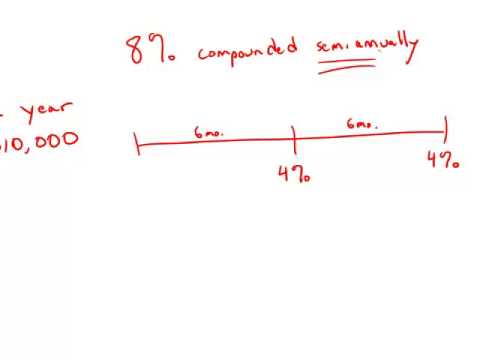 8% compounded semiannually
year
10,000
6mo. 6mo.
4% 4%